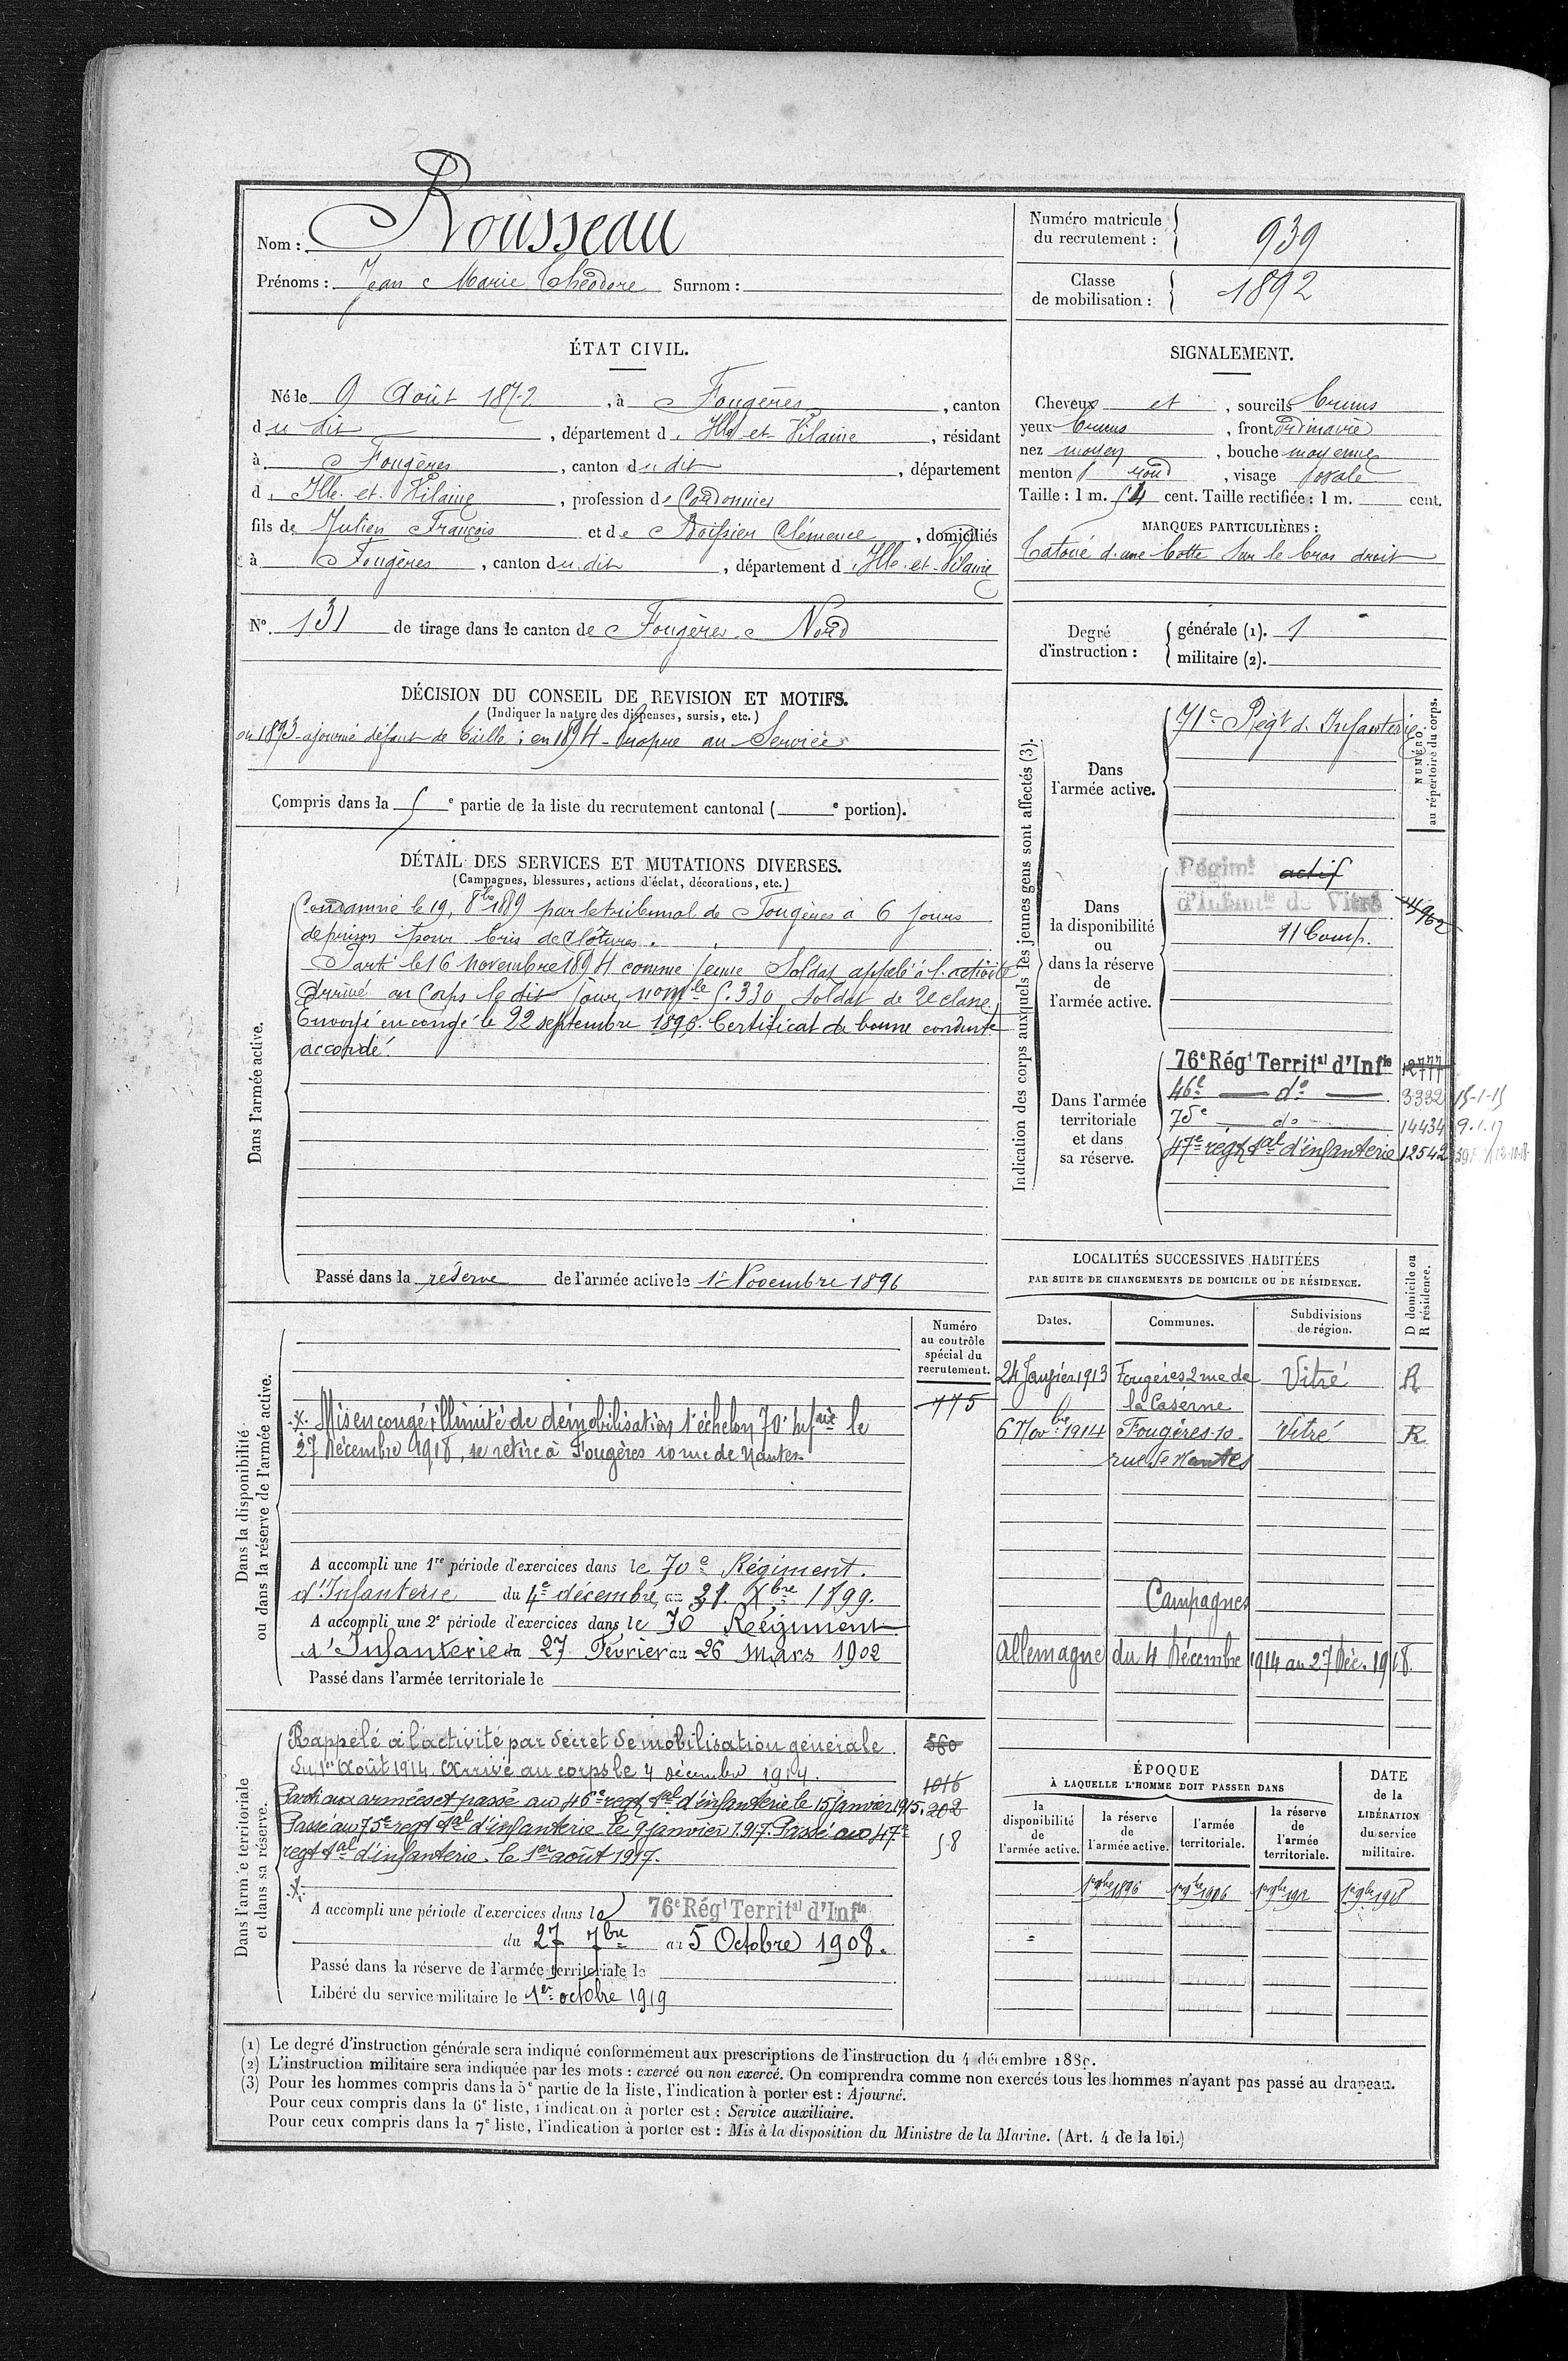 Nom : Rousseau
Prénoms : Jean Marie Théodore Surnom :
Numéro matricule
du recrutement : 939
Classe
de mobilisation : 1892
ÉTAT CIVIL.
Né le 9 Août 1872, à Fougères, canton
du dit, département d'Ille et Vilaine, résidant
à Fougères, canton du dit, département
d'Ille et Vilaine, profession de Cordonnier
fils de Julien François et de Boissier Clémence, domiciliés
à Fougères, canton du dit, département d'Ille et Vilaine
N° 131 de tirage dans le canton de Fougères Nord
SIGNALEMENT.
Cheveux et, sourcils bruns
yeux bruns, front ordinaire
nez moyen, bouche moyenne
menton rond, visage ovale
Taille : 1 m. 54 cent. Taille rectifiée : 1 m. cent.
MARQUES PARTICULIÈRES :
Tatoué d'une botte sur le bras droit
Degré
d'instruction :
générale (1). 1
militaire (2).
DÉCISION DU CONSEIL DE REVISION ET MOTIFS.
(Indiquer la nature des dispenses, sursis, etc.)
en 1893 ajourné défaut de taille ; en 1894 - Propre au Service
Compris dans la e partie de la liste du recrutement cantonal ( e portion).
DÉTAIL DES SERVICES ET MUTATIONS DIVERSES.
(Campagnes, blessures, actions d'éclat, décorations, etc.)
Dans l'armée active.
Condamné le 19, 8bre 1889 par le tribunal de Fougères à 6 jours
de prison pour bris de clôtures.
Parti le 16 novembre 1894 comme jeune Soldat appelé à l'activité
Arrivé au Corps le dit jour, nomle 5.330 soldat de 2e classe.
Envoyé en congé le 22 septembre 1895. Certificat de bonne conduite
accordé.
Passé dans la réserve de l'armée active le 1er Novembre 1896
Indication des corps auxquels les jeunes gens sont affectés (3).
NUMÉRO
au répertoire du corps.
Dans
l'armée active.
71e Régt d'Infanterie
Dans
la disponibilité
ou
dans la réserve
de
l'armée active.
Régimt actif
d'Infantie de Vitré
11 Comp.
Dans l'armée
territoriale
et dans
sa réserve.
76e Régt Territal d'Infie 12777
46e — do — 3332 15-1-15
75e — do 14434 9.1.17
47e régt tal d'infanterie 12542
LOCALITÉS SUCCESSIVES HABITÉES
PAR SUITE DE CHANGEMENTS DE DOMICILE OU DE RÉSIDENCE.
Dates. Communes. Subdivisions de région. D domicile ou R résidence.
24 Janvier 1913 Fougères 2 rue de Vitré R
la Caserne
6 Novbre 1914 Fougères 10 Vitré R
rue de Nantes
Campagnes
Allemagne du 4 Décembre 1914 au 27 Déc. 1918.
Dans la disponibilité
ou dans la réserve de l'armée active.
Numéro
au contrôle
spécial du
recrutement.
775
.x. Mis en congé illimité de démobilisation 1e échelon 70e infrie le
27 Décembre 1918, se retire à Fougères 10 rue de Nantes
A accompli une 1re période d'exercices dans le 70e Régiment.
d'Infanterie du 4e décembre au 31. Xbre 1899.
A accompli une 2e période d'exercices dans le 70 Régiment
d'Infanterie du 27 Février au 26 Mars 1902
Passé dans l'armée territoriale le
Dans l'armée territoriale
et dans sa réserve.
Rappelé à l'activité par décret de mobilisation générale 580
du 1er Août 1914. Arrivé au corps le 4 décembre 1914. 1016
Parti aux armées et passé au 46e régt tal d'infanterie le 15 janvier 1915. 202
Passé au 75e régt tal d'infanterie le 9 janvier 1917. Passé au 47e 58
régt tal d'infanterie le 1er août 1917.
.x.
A accompli une période d'exercices dans le 76e Régt Territal d'Infie
du 27 7bre au 5 Octobre 1908.
Passé dans la réserve de l'armée territoriale le
Libéré du service militaire le 1er octobre 1919
ÉPOQUE
À LAQUELLE L'HOMME DOIT PASSER DANS
la disponibilité de l'armée active.
la réserve de l'armée active.
l'armée territoriale.
la réserve de l'armée territoriale.
DATE
de la
LIBÉRATION
du service
militaire.
1er 9bre 1896 1er 9bre 1906 1er 9bre 1912 1er 9bre 1918
(1) Le degré d'instruction générale sera indiqué conformément aux prescriptions de l'instruction du 4 décembre 1889.
(2) L'instruction militaire sera indiquée par les mots : exercé ou non exercé. On comprendra comme non exercés tous les hommes n'ayant pas passé au drapeau.
(3) Pour les hommes compris dans la 5e partie de la liste, l'indication à porter est : Ajourné.
Pour ceux compris dans la 6e liste, l'indication à porter est : Service auxiliaire.
Pour ceux compris dans la 7e liste, l'indication à porter est : Mis à la disposition du Ministre de la Marine. (Art. 4 de la loi.)